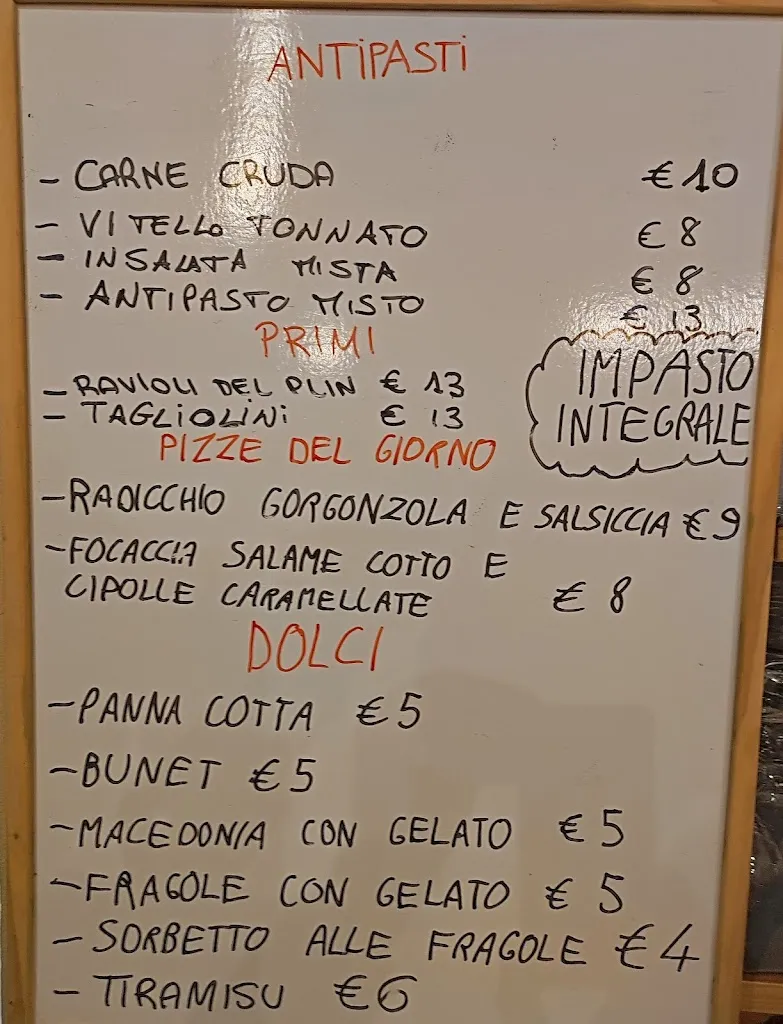 ANTIPASTI
- CARNE CRUDA € 10
- VITELLO TONNATO € 8
- INSALATA MISTA € 8
- ANTIPASTO MISTO € 13
PRIMI
- RAVIOLI DEL PLIN € 13
- TAGLIOLINI € 13
IMPASTO
INTEGRALE
PIZZE DEL GIORNO
- RADICCHIO GORGONZOLA E SALSICCIA € 9
- FOCACCIA SALAME COTTO E
CIPOLLE CARAMELLATE € 8
DOLCI
- PANNA COTTA € 5
- BUNET € 5
- MACEDONIA CON GELATO € 5
- FRAGOLE CON GELATO € 5
- SORBETTO ALLE FRAGOLE € 4
- TIRAMISU € 6